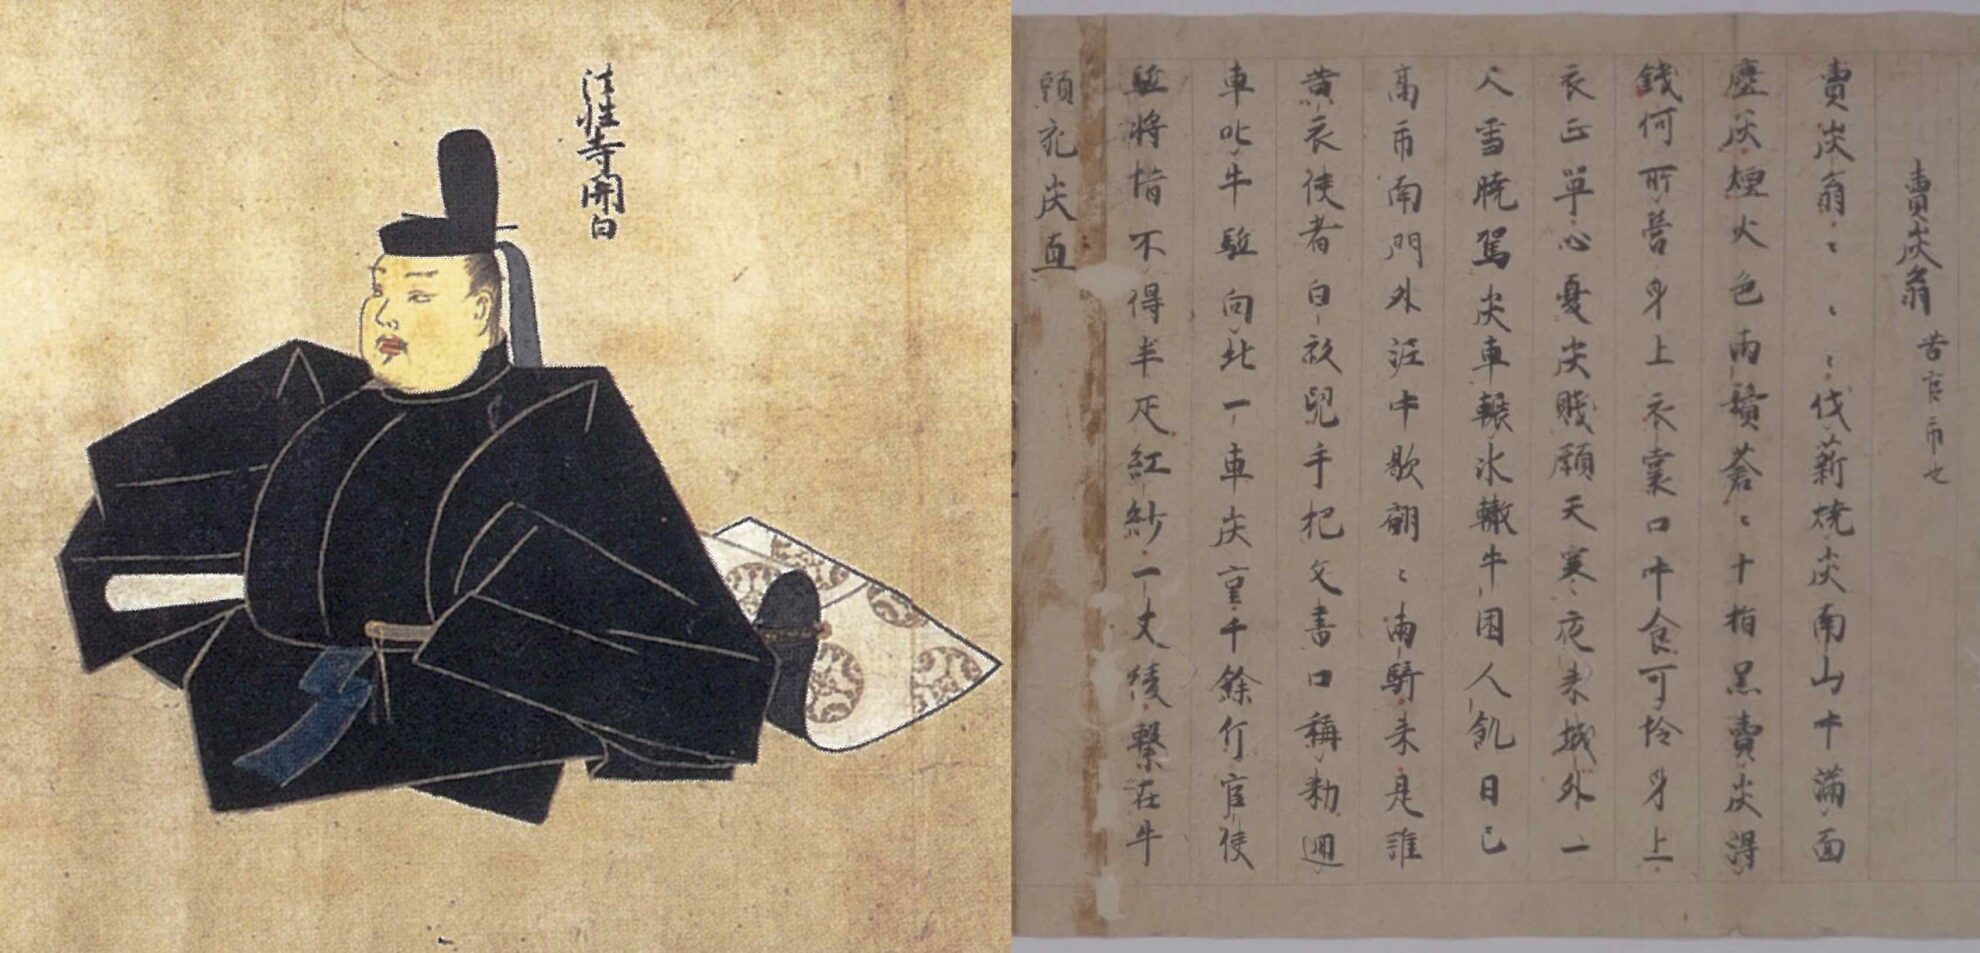 法性寺開白
賣炭翁 苦官市也
賣炭翁〻〻〻伐薪燒炭南山中滿面
塵灰煙火色兩鬢蒼〻十指黑賣炭得
錢何所營身上衣裳口中食可怜身上
衣正單心憂炭賤願天寒夜來城外一
尺雪曉駕炭車輾氷轍牛困人飢日已
高市南門外泥中歇翩〻兩騎來是誰
黃衣使者白衫兒手把文書口稱勅迴
車叱牛駈向北一車炭重千餘斤官使
駈將惜不得半疋紅紗一丈綾繫在牛
頭充炭直